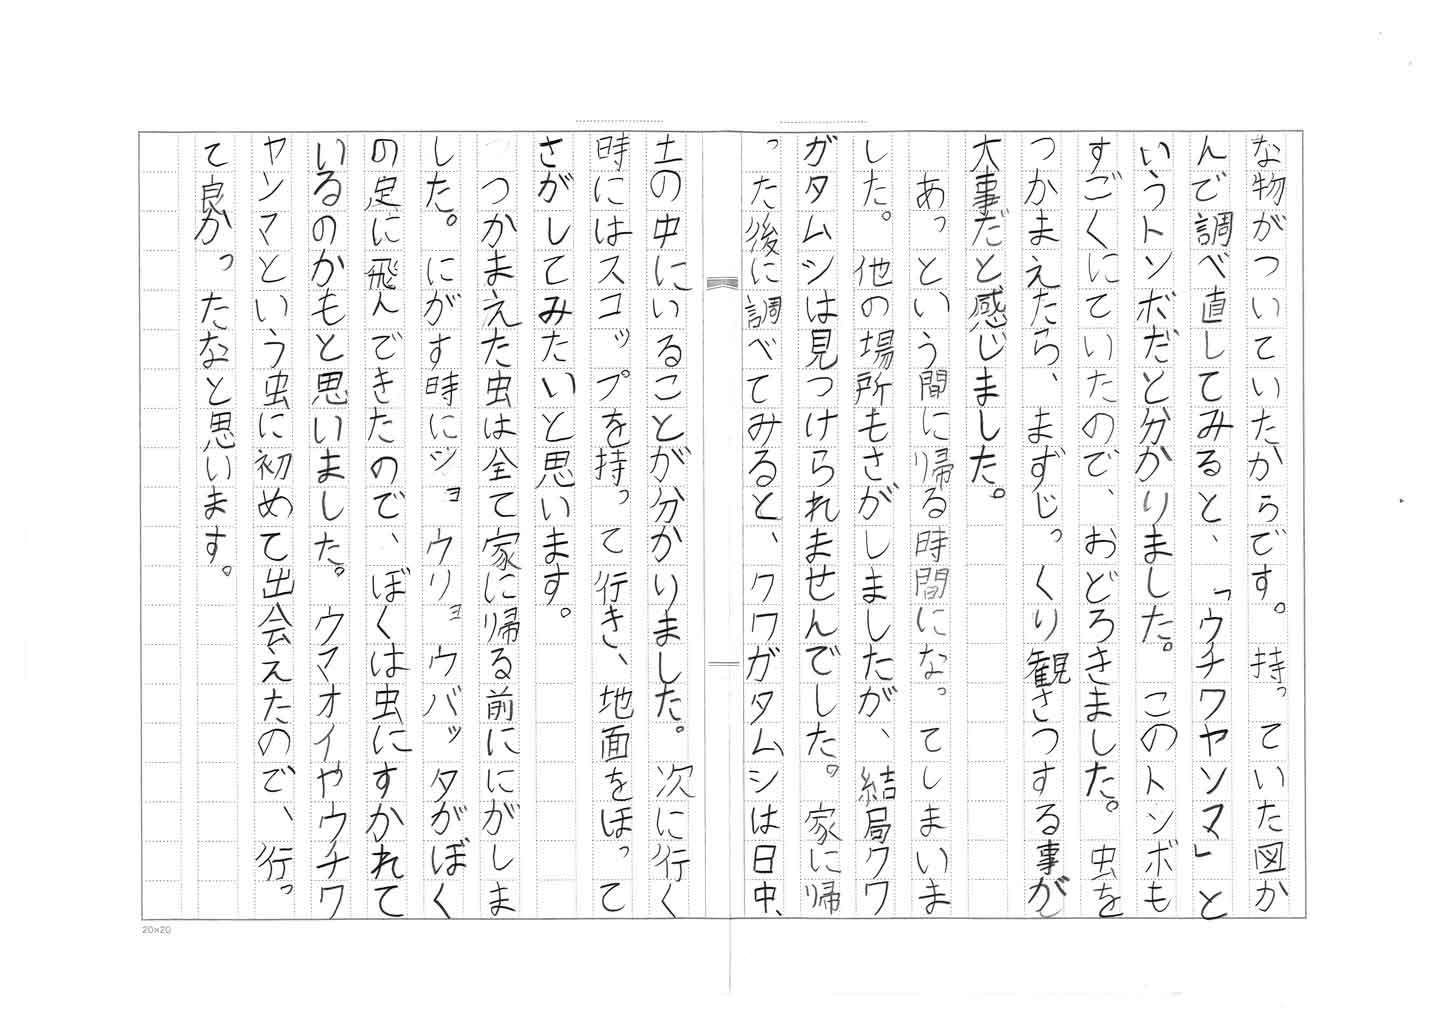 な物がついていたからです。持っていた図か
んで調べ直してみると、「ウチワヤンマ」と
いうトンボだと分かりました。このトンボも
すごくにていたので、おどろきました。虫を
つかまえたら、まずじっくり観さつする事が
大事だと感じました。
　あっという間に帰る時間になってしまいま
した。他の場所もさがしましたが、結局クワ
ガタムシは見つけられませんでした。家に帰
った後に調べてみると、クワガタムシは日中、
土の中にいることが分かりました。次に行く
時にはスコップを持って行き、地面をほって
さがしてみたいと思います。
　つかまえた虫は全て家に帰る前ににがしま
した。にがす時にショウリョウバッタがぼく
の足に飛んできたので、ぼくは虫にすかれて
いるのかもと思いました。ウマオイやウチワ
ヤンマという虫に初めて出会えたので、行っ
て良かったなと思います。
20×20